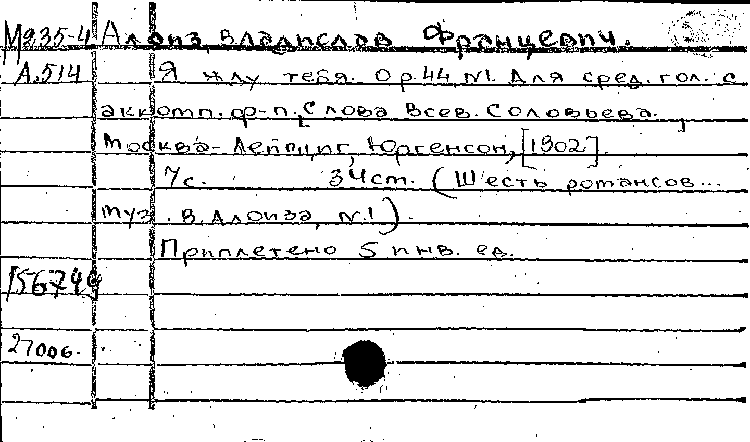 М935-4 Алоиз, Владислав Францевич.
А.514 Я жду тебя. Ор.44, №1. Для сред. гол. с
аккомп. ф-п. [Слова Всев. Соловьева.]
Москва-Лейпциг, Юргенсон, [1902].
7с. 34см. (Шесть романсов...
муз. В. Алоиза, №1).
Приплетено 5 инв. ед.
156749
27006.